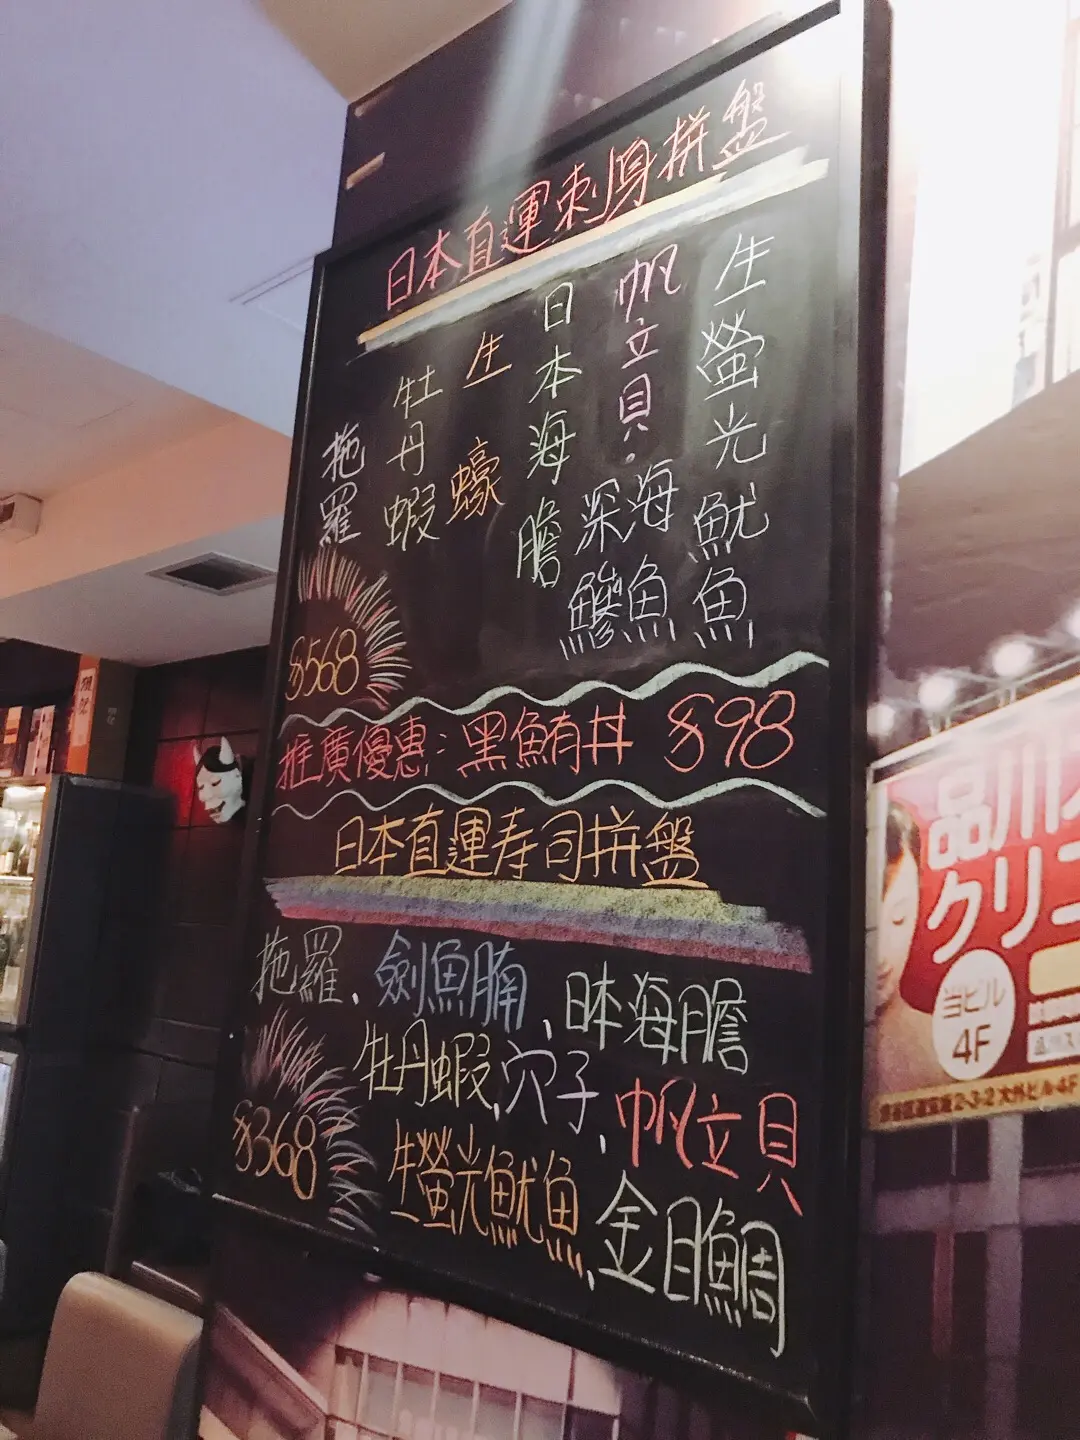 日本直運刺身拼盤
生螢光魷魚
帆立貝.
深海
鰺魚
日本海膽
生蠔
牡丹蝦
拖羅
$568
推廣優惠: 黑鮪丼 $98
日本直運寿司拼盤
拖羅、劍魚腩、日本海膽
牡丹蝦、穴子、帆立貝
生螢光魷魚、金目鯛
$368
品川
クリ
当ビル
4F